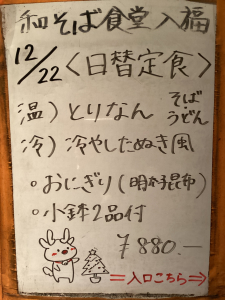 和そば食堂 入福
12/22 <日替定食>
温) とりなん そば
冷) 冷やしたぬき風 うどん
。おにぎり(明太昆布)
。小鉢2品付
¥880.—
=入口こちら⇒